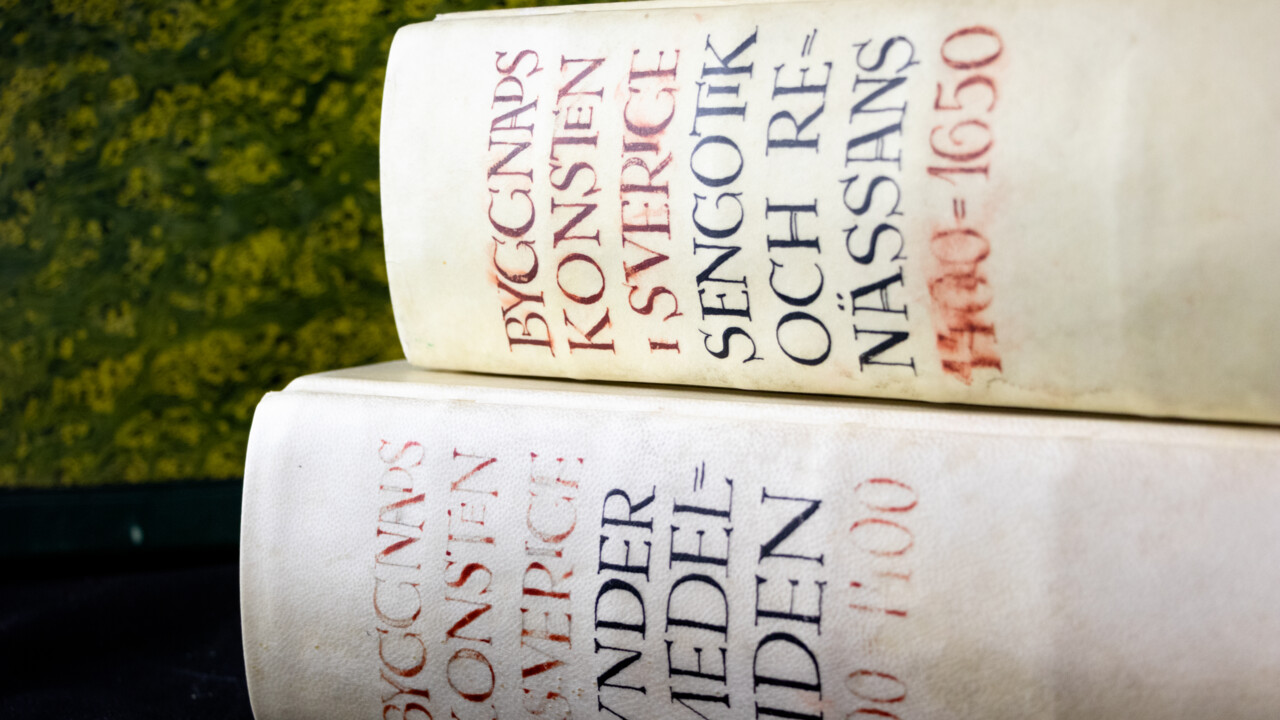 BYGGNADS
KONSTEN
I SVERIGE
SENGOTIK
OCH RE=
NÄSSANS
1400=1650
BYGGNADS
KONSTEN
SVERIGE
VNDER
MEDEL=
IDEN
00 1400